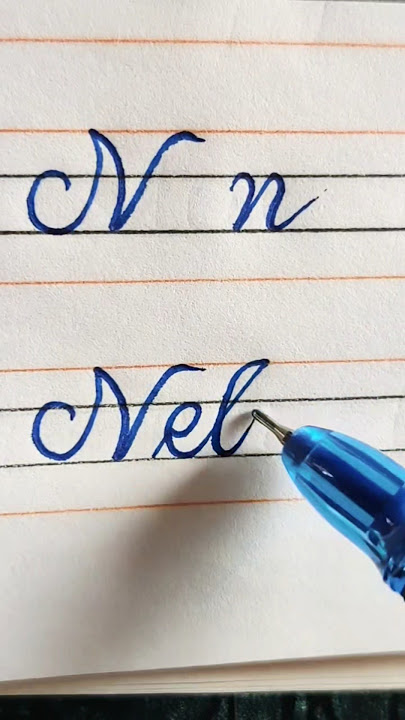 N n
Nel